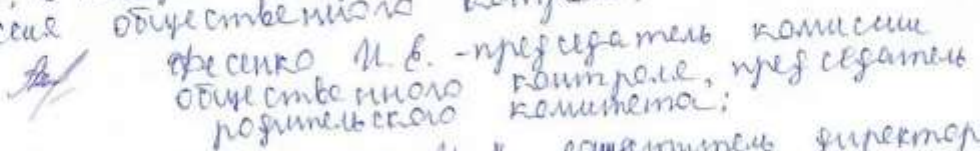 общественного
Фесенко И. В. - председатель комиссии
общественного контроле, председатель
родительского комитета;
директор